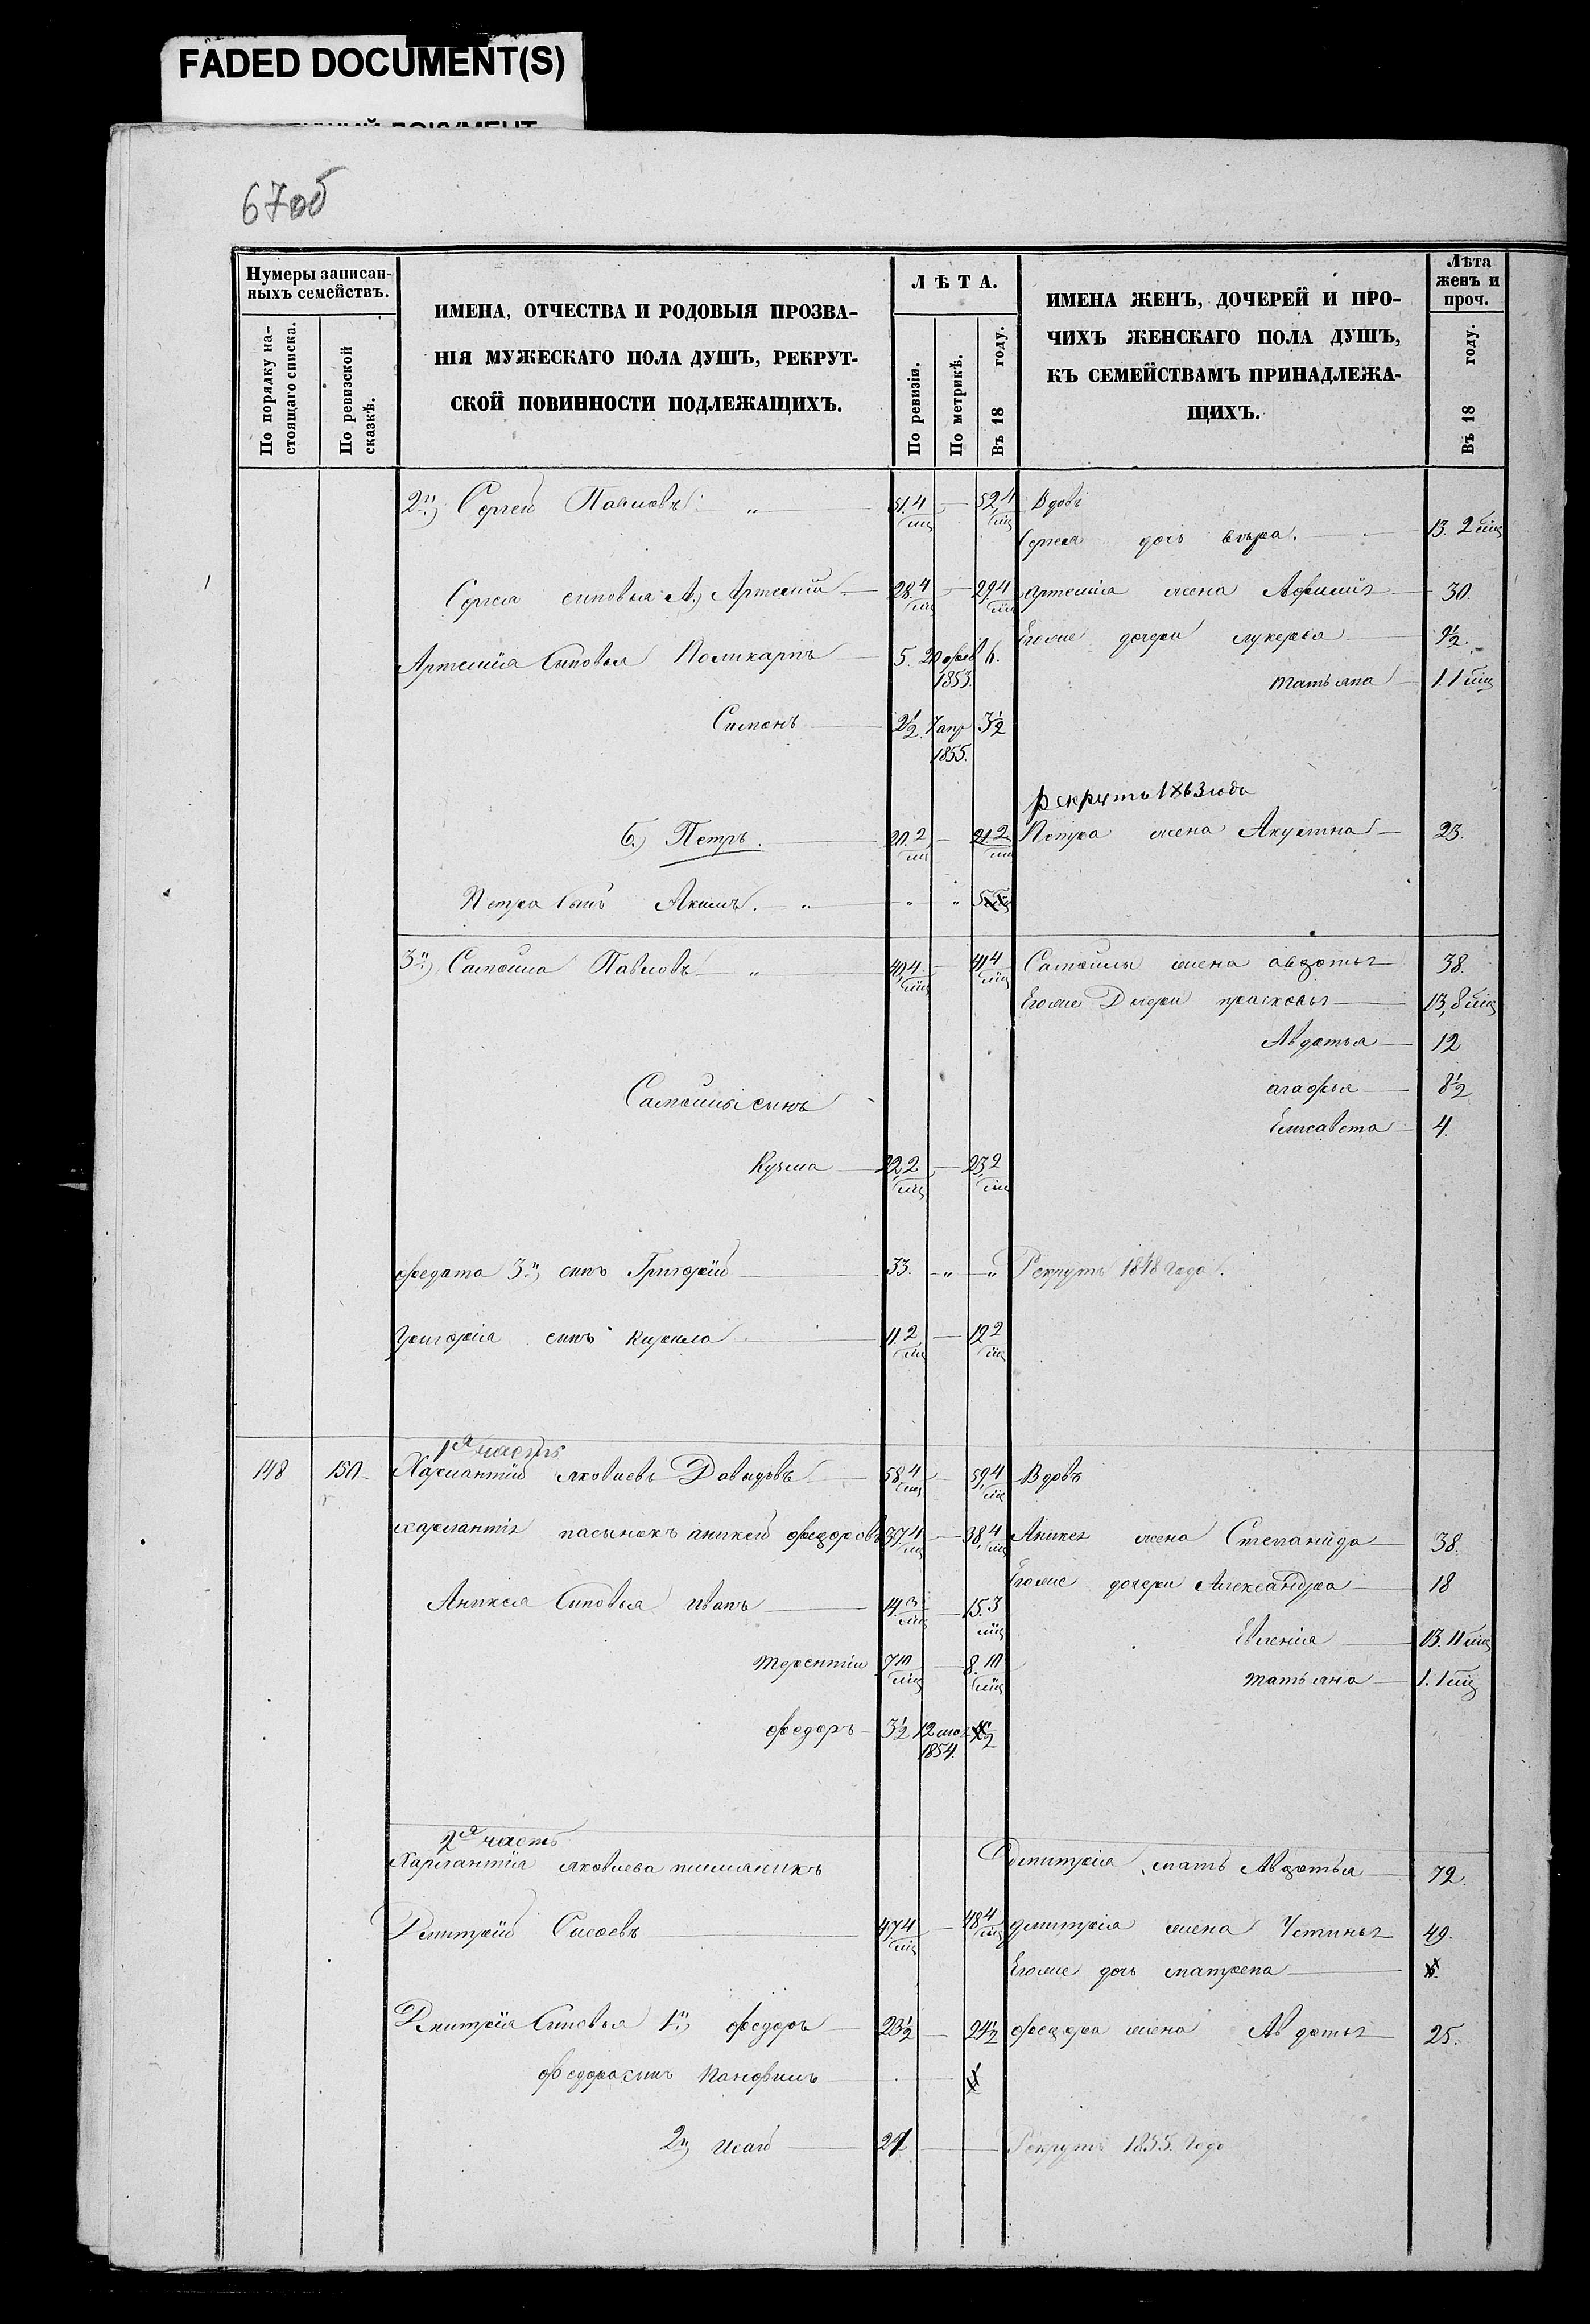 FADED DOCUMENT(S)
67об
Нумеры записан-
ныхъ семействъ.
По порядку на-
стоящаго списка.
По ревизской
сказкѣ.
ИМЕНА, ОТЧЕСТВА И РОДОВЫЯ ПРОЗВА-
НІЯ МУЖЕСКАГО ПОЛА ДУШЪ, РЕКРУТ-
СКОЙ ПОВИННОСТИ ПОДЛЕЖАЩИХЪ.
ЛѢТА.
По ревизіи.
По метрикѣ.
Въ 18 году.
ИМЕНА ЖЕНЪ, ДОЧЕРЕЙ И ПРО-
ЧИХЪ ЖЕНСКАГО ПОЛА ДУШЪ,
КЪ СЕМЕЙСТВАМЪ ПРИНАДЛЕЖА-
ЩИХЪ.
Лѣта
женъ и
проч.
Въ 18 году.
2й) Сергей Павловъ 51.4 мц 52.4 мц Вдовъ
Сергея дочь 13. 2 мц
Сергея сыновья А) Артемий 28.4 мц 29.4 мц Артемія жена Афимия 30.
Артемія Сыновья Поликарпъ 5. 20 фев 1853. 6. Егоже дочери лукерья 9½
татьяна 1. 1 мц
Симонъ 2½ 7 апр 1855. 3½
рекрутъ 1863 года
Б) Петръ. 20.2 мц 21.2 мц Петра жена Акулина 23.
Петра сынъ Акимъ. " "
3й) Самойла Павловъ 40,4 мц 41,4 мц Самойлы жена авдотья 38.
Егоже Дочери прасковья 13,8 мц
Авдотья 12
агафья 8½
Елисавета 4.
Самойлы сынъ
Кузма 22,2 мц 23,2 мц
Федота 3й) сынъ Григорій 33. " " Рекрутъ 1848 года.
Григорія сынъ кирила 11.2 мц 12.2 мц
1я часть
148 150 Харлантій яковлевъ Давыдовъ 58.4 мц 59,4 мц Вдовъ
харлантія пасынокъ аникей федоровъ 37,4 мц 38,4 мц Аникея жена Степанида 38.
Егоже дочери Александра 18
Аникея Сыновья иванъ 14.3 мц 15.3 мц
Евгенія 13. 11 мц
терентій 7.10 мц 8.10 мц
татьяна 1. 1 мц
федоръ 3½ 1854.
2я часть
Харлантія яковлева племяникъ Дмитрія мать Авдотья 72.
Дмитрій Сысоевъ 47,4 мц 48,4 мц дмитрія жена Устинья 49.
Егоже дочь матрена
Дмитрія Сыновья 1й) федоръ 23½ 24½ федора жена Авдотья 25.
федора сынъ панфилъ
2й) исай Рекрутъ 1855. года